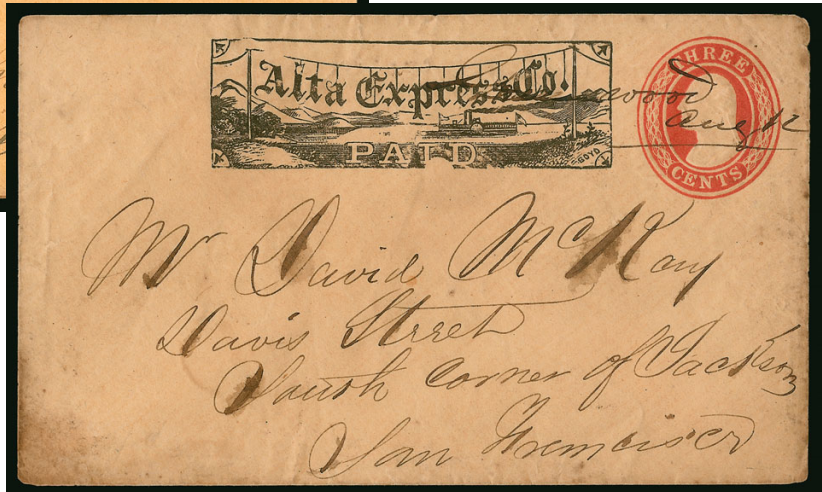 Alta Express Co.
PAID
BOYD
THREE
CENTS
wood
Aug 12
Mr David McKay
Davis Street
South Corner of Jackson
San Francisco